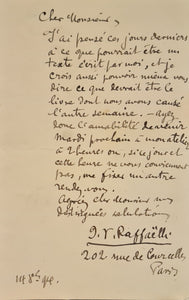 Cher Monsieur,
J'ai pensé ces jours derniers
à ce que pourrait être un
texte écrit par moi, et je
crois aussi pouvoir même vous
dire ce que devrait être le
livre dont nous avons causé
l'autre semaine. — Ayez
donc l'amabilité de venir
Mardi prochain à mon atelier
à 2 heures ou, si ce jour et
cette heure ne vous conviennent
pas, me fixer un autre
rendez-vous.
Agréez, cher Monsieur mes
distinguées salutations
J. F. Raffaëlli
202 rue de Courcelles
Paris